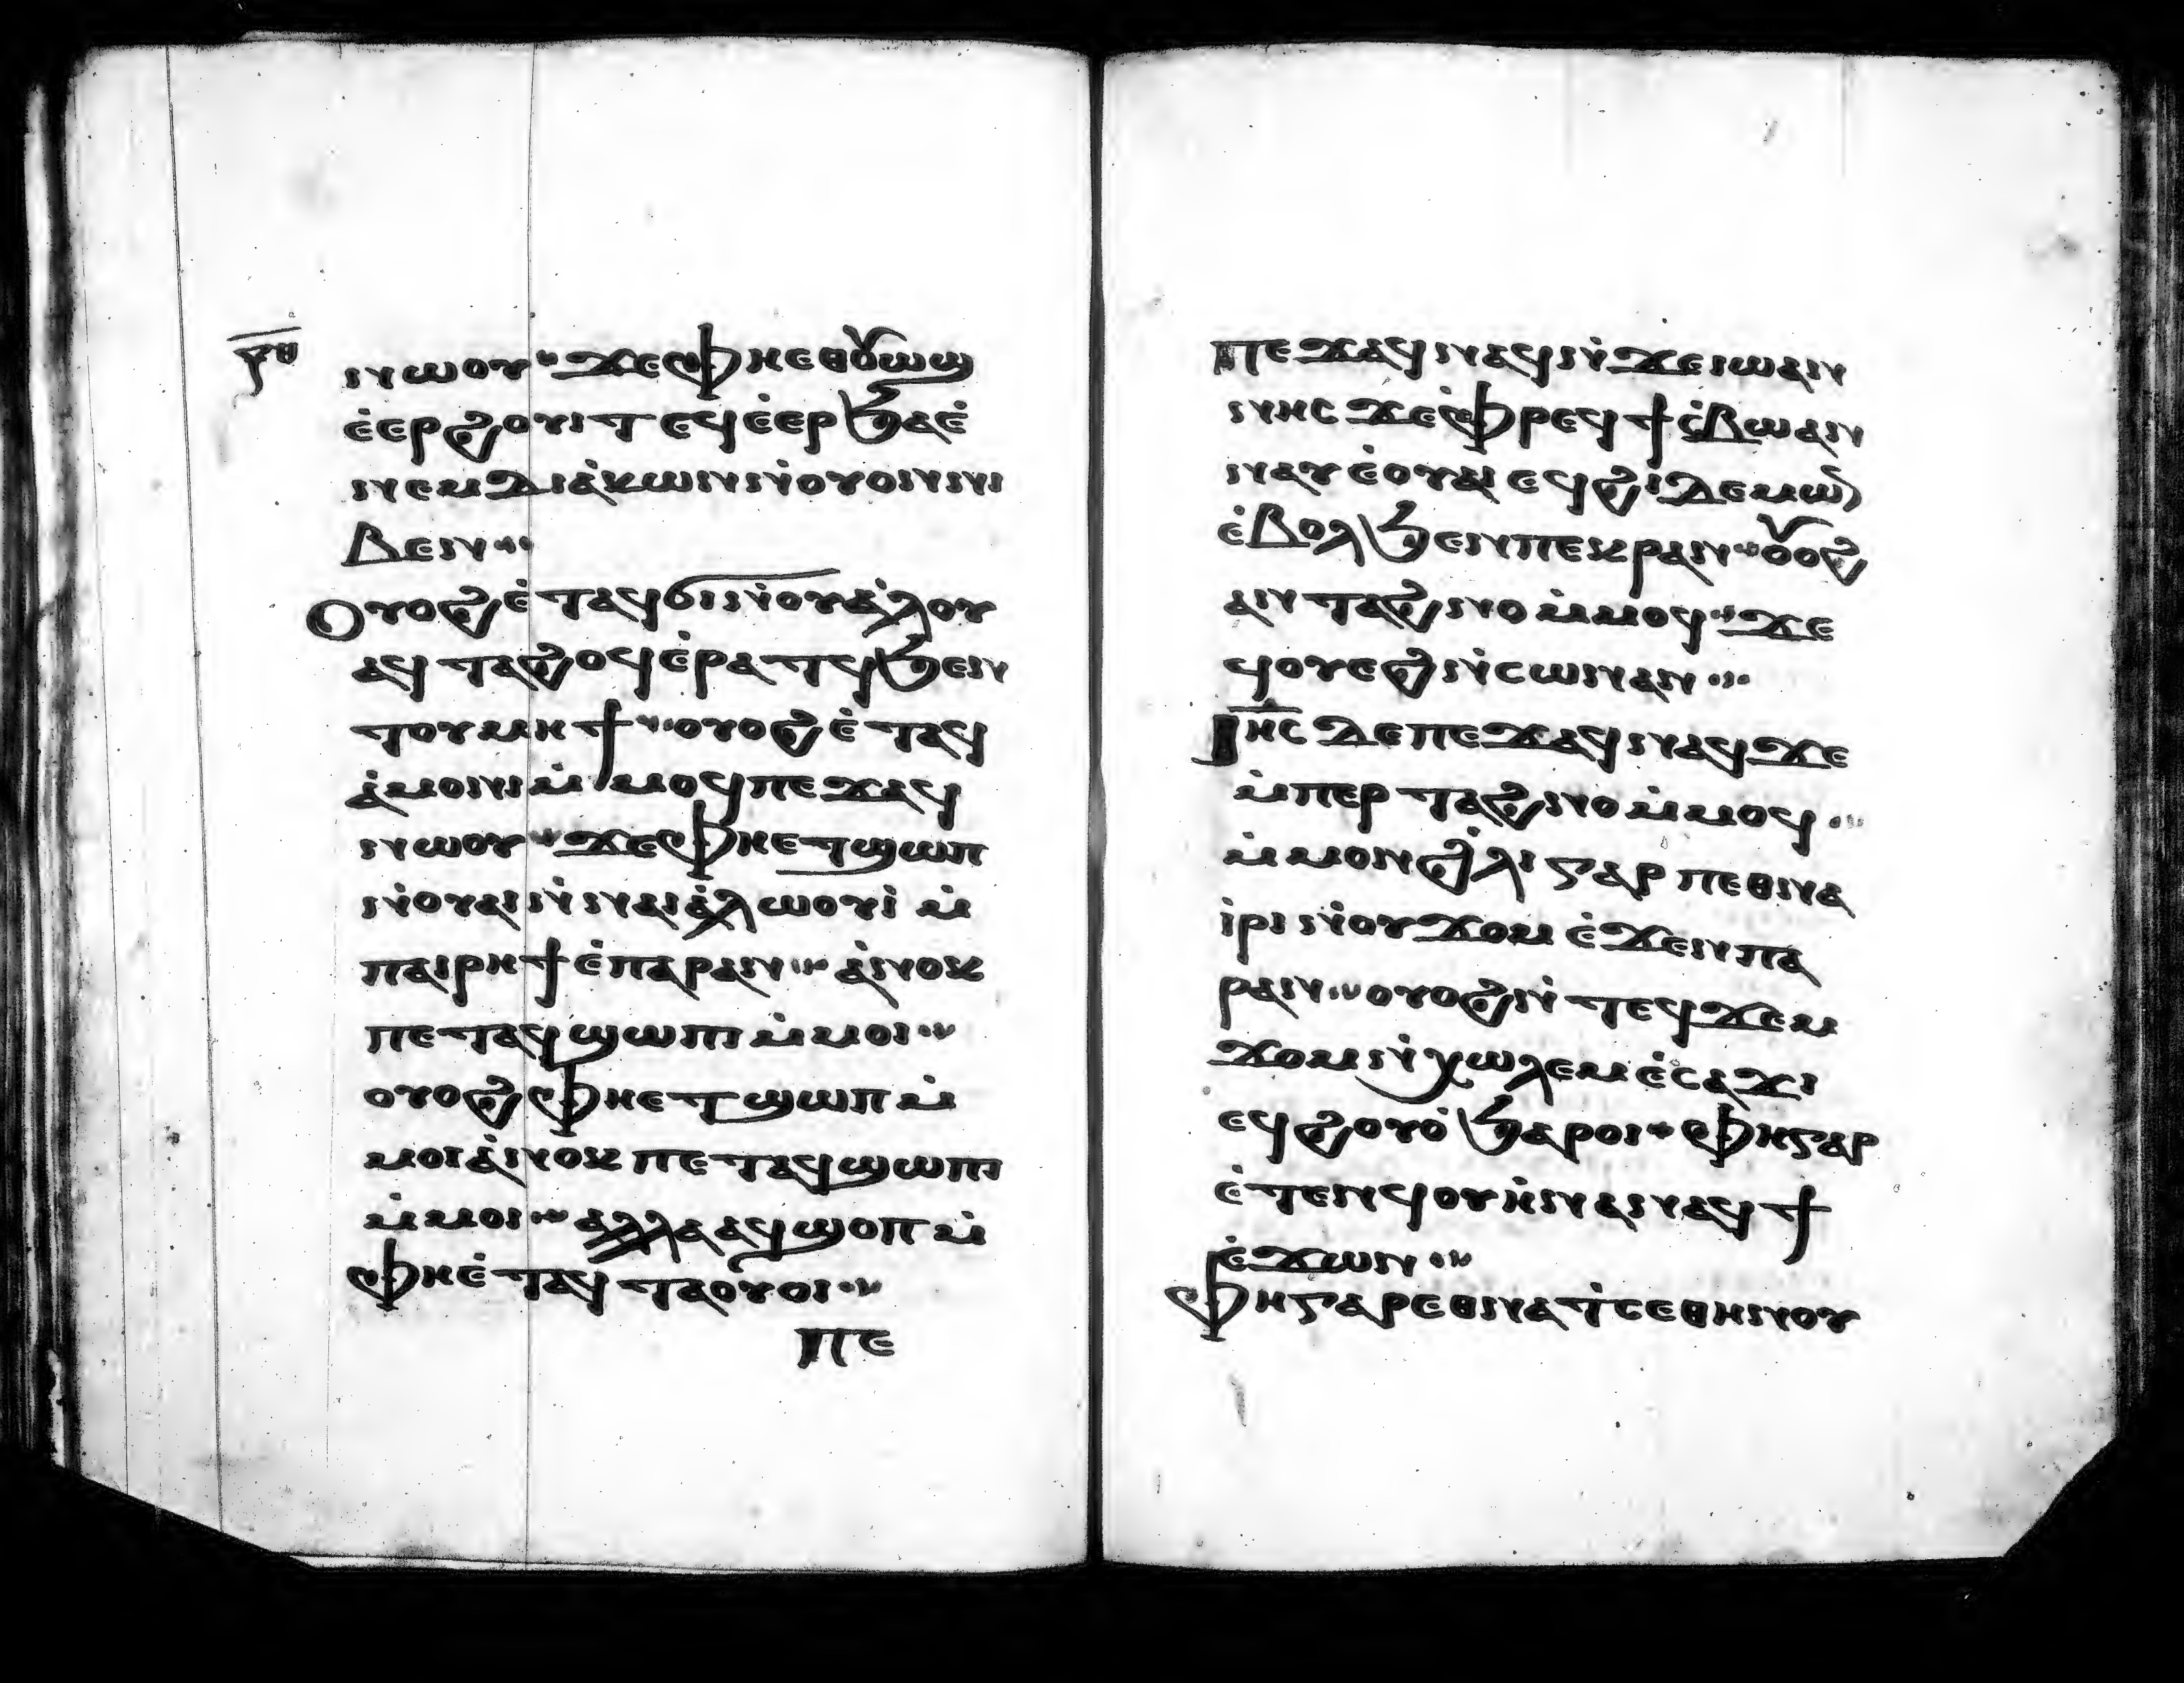 ⲣ̅ⲑ
ⲛⲱⲟⲩ ϫⲉⲫⲏⲉⲑⲟⲩⲱϣ
ⲉ̇ⲉⲣϩⲟⲩⲓⲧ ⲉϥⲉ̇ⲉⲣϧⲁⲉ̇
ⲛⲉⲙⲇⲓⲁ̇ⲕⲱⲛⲛ̇ⲟⲩⲟⲛⲛⲓ
ⲃⲉⲛ
Ⲟⲩⲟϩⲉ̇ⲧⲁϥϭⲓⲛ̇ⲟⲩⲁ̇ⲗⲟⲩ
ⲁϥⲧⲁϩⲟϥⲉ̇ⲣⲁⲧϥϧⲉⲛ
ⲧⲟⲩⲙⲏϯ ⲟⲩⲟϩⲉ̇ⲧⲁϥ
ⲁ̇ⲙⲟⲛⲓⲙ̇ⲙⲟϥⲡⲉϫⲁϥ
ⲛⲱⲟⲩ ϫⲉⲫⲏⲉⲧϣⲱⲡ
ⲛ̇ⲟⲩⲁⲓⲛ̇ⲛⲁⲓⲁ̇ⲗⲱⲟⲩⲓ̇ ⲙ̇
ⲡⲁⲓⲣⲏϯⲉ̇ⲡⲁⲣⲁⲛ ⲁ̇ⲛⲟⲕ
ⲡⲉⲧⲁϥϣⲱⲡⲓⲙ̇ⲙⲟⲓ
ⲟⲩⲟϩⲫⲏⲉⲧϣⲱⲡⲙ̇
ⲙⲟⲓⲁ̇ⲛⲟⲕⲡⲉⲧⲁϥϣⲱⲡⲓ
ⲙ̇ⲙⲟⲓ ⲁⲗⲗⲁⲁϥϣⲟⲡⲙ̇
ⲫⲏⲉ̇ⲧⲁϥⲧⲁⲟⲩⲟⲓ
ⲡⲉ
ⲡⲉϫⲁϥⲛⲁϥⲛ̇ϫⲉⲓⲱⲁⲛ
ⲛⲏⲥ ϫⲉⲫⲣⲉϥϯⲥ̇ⲃⲱⲁⲛ
ⲛⲁⲩⲉ̇ⲟⲩⲁⲓⲉϥϩⲓ̇ⲇⲉⲙⲱ̅
ⲉ̇ⲃⲟⲗϧⲉⲛⲡⲉⲕⲣⲁⲛ ⲟⲩⲟϩ
ⲁⲛⲧⲁϩⲛⲟⲙ̇ⲙⲟϥ ϫⲉ
ϥⲟⲩⲉϩⲛ̇ⲥⲱⲛⲁⲛ
Ⲓ̅ⲏ̅ⲥ̅ ⲇⲉⲡⲉϫⲁϥⲛⲁϥϫⲉ
ⲙ̇ⲡⲉⲣⲧⲁϩⲛⲟⲙ̇ⲙⲟϥ
ⲙ̇ⲙⲟⲛϩ̇ⲗⲓⲅⲁⲣⲡⲉⲑⲛⲁ
ⲓ̇ⲣⲓⲛ̇ⲟⲩϫⲟⲙⲉ̇ϫⲉⲛⲡⲁ
ⲣⲁⲛ ⲟⲩⲟϩⲛ̇ⲧⲉϥϫⲉⲙ
ϫⲟⲙⲛ̇ⲭⲱⲗⲉⲙⲉ̇ⲥⲁϫⲓ
ⲉϥϩⲟⲩⲟ̇ϧⲁⲣⲟⲓ ⲫⲏⲅⲁⲣ
ⲉ̇ⲧⲉⲛϥⲟⲩⲏ̇ⲛⲁⲛⲁϥϯ
ⲉ̇ϫⲱⲛ
Ⲫⲏⲅⲁⲣⲉⲑⲛⲁⲧ̇ⲥⲉⲑⲏⲛⲟⲩ